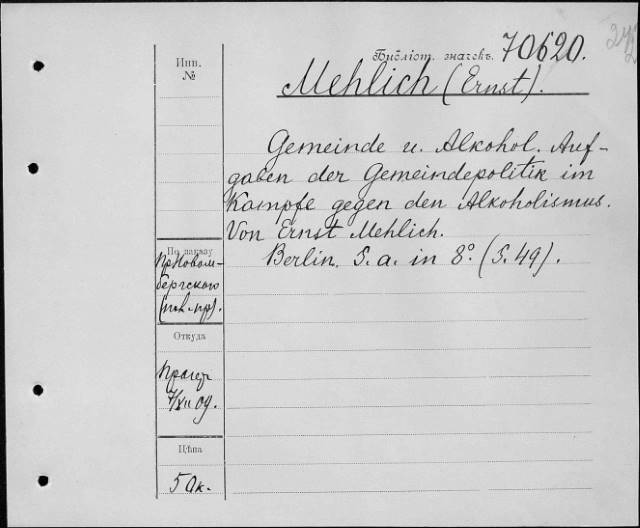 Инв.
№
Библіот. значекъ. 70620.
Mehlich (Ernst).
Gemeinde u. Alkohol. Auf-
gaben der Gemeindepolitik im
Kampfe gegen den Alkoholismus.
Von Ernst Mehlich.
Berlin. S. a. in 8º. (S. 49).
По заказу
пр. Новом-
бергского
Откуда
Прагеръ
7/XII 09.
Цѣна
50 к.